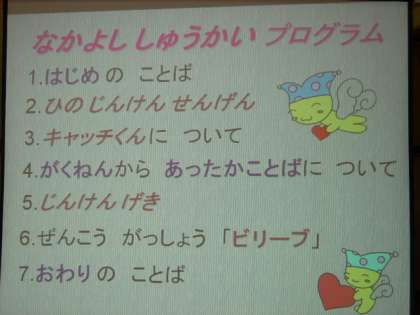 なかよし しゅうかい プログラム
1.はじめ の ことば
2.ひの じんけん せんげん
3.キャッチくんに ついて
4.がくねんから あったかことばに ついて
5.じんけん げき
6.ぜんこう がっしょう 「ビリーブ」
7.おわり の ことば